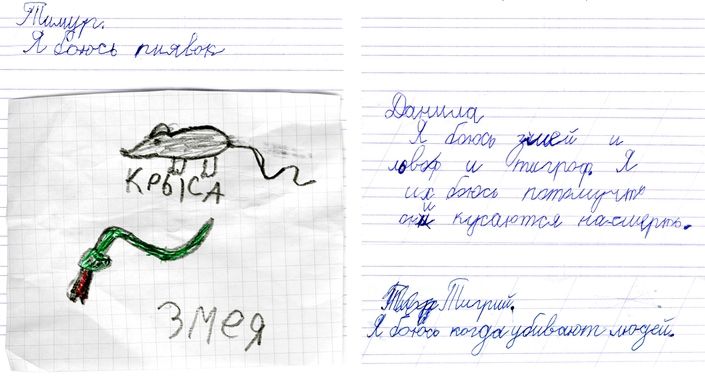 Тимур.
Я боюсь пиявок
КРЫСА
ЗМЕЯ
Данила
Я боюсь змей и
львоф и тигроф. Я
их боюсь потомучто
они кусаются насмерть.
Тигрий.
Я боюсь когда убивают людей.